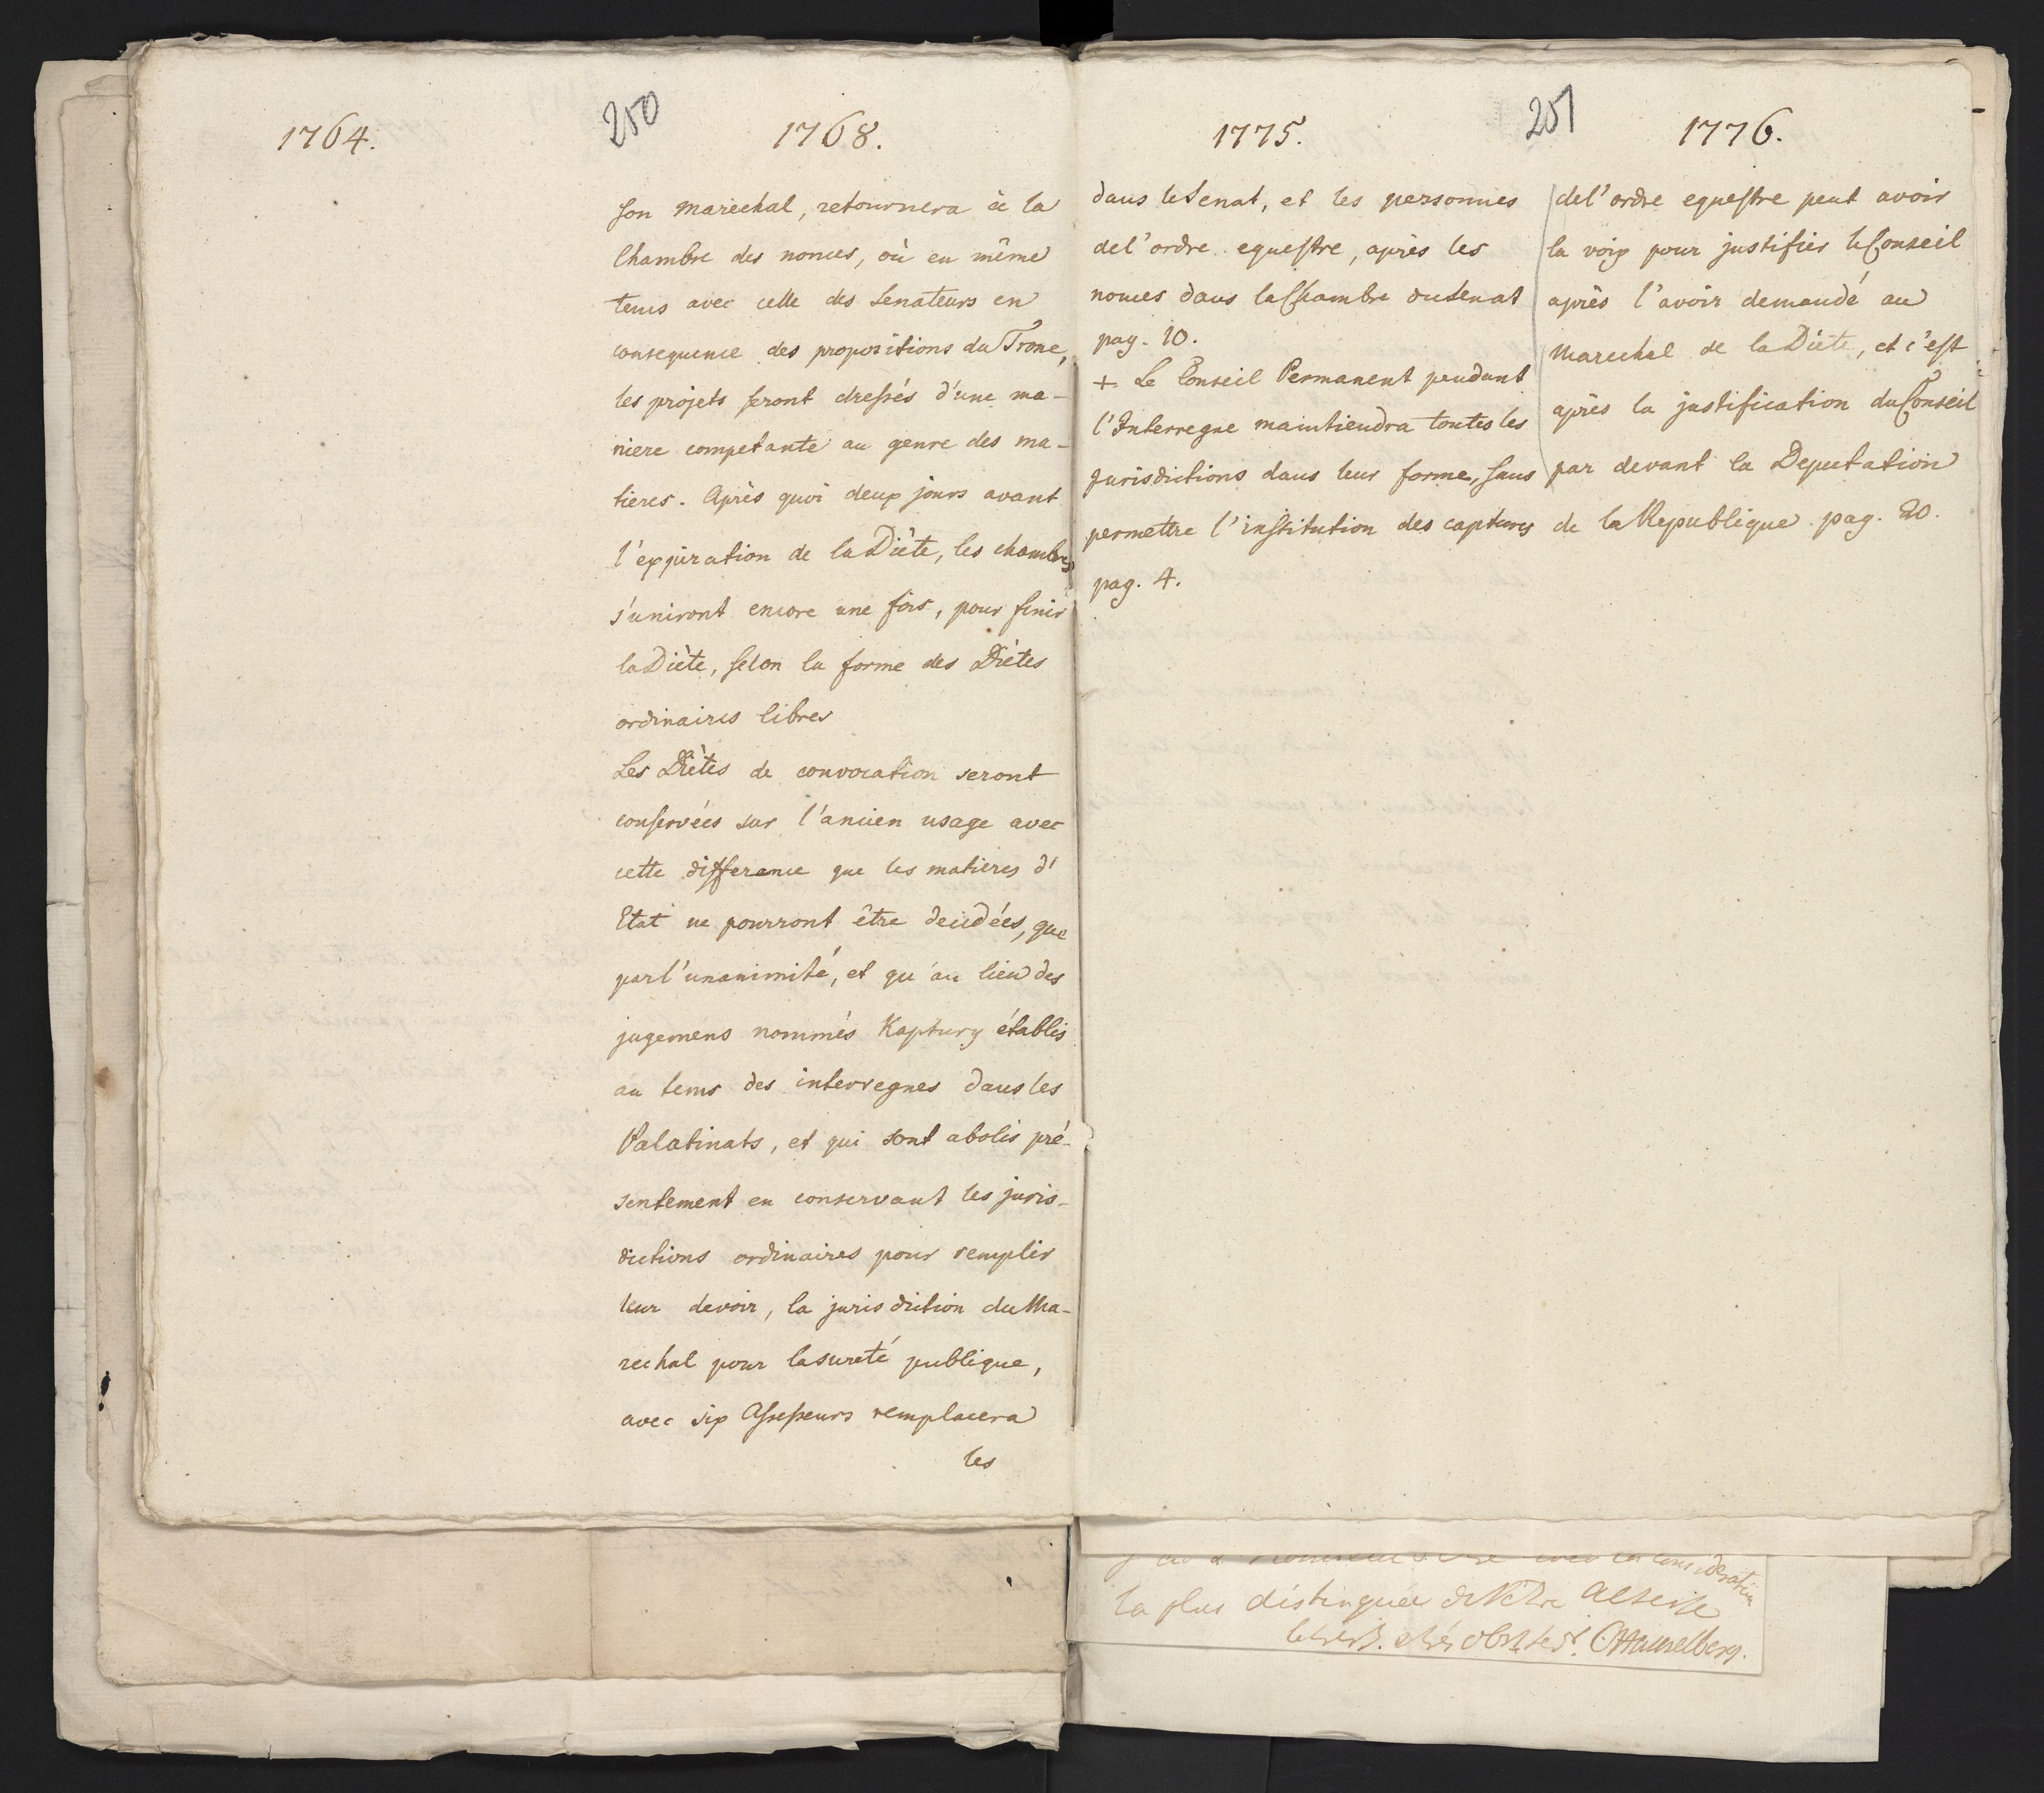 1764.
250
1768.
son marechal, retournera à la
Chambre des nonces, où en même
tems avec celle des Senateurs en
consequence des propositions du Trone,
les projets seront dressés d'une ma-
niere competante au genre des ma-
tieres. Après quoi deux jours avant
l'expiration de la Diète, les chambres
s'uniront encore une fois, pour finir
la Diète, selon la forme des Diètes
ordinaires libres
Les Diètes de convocation seront
conservées sur l'ancien usage avec
cette difference que les matieres d'
Etat ne pourront être decidées, que
par l'unanimité, et qu'au lieu des
jugemens nommés Kaptury établis
au tems des interregnes dans les
Palatinats, et qui sont abolis pré-
sentement en conservant les juris-
dictions ordinaires pour remplir
leur devoir, la jurisdiction du Ma-
rechal pour la sureté publique,
avec six Assesseurs remplacera
les
1775.
dans le Senat, et les personnes
de l'ordre equestre, après les
nonces dans la Chambre du Senat
pag. 10.
+ Le Conseil Permanent pendant
l'Interregne maintiendra toutes les
jurisdictions dans leur forme, sans
permettre l'institution des capturs
pag. 4.
251
1776.
de l'ordre equestre peut avoir
la voix pour justifier le Conseil
après l'avoir demandé au
Marechal de la Diète, et c'est
après la justification du Conseil
par devant la Deputation
de la Republique. pag. 20.
consideration
la plus distinguée de Votre Altesse